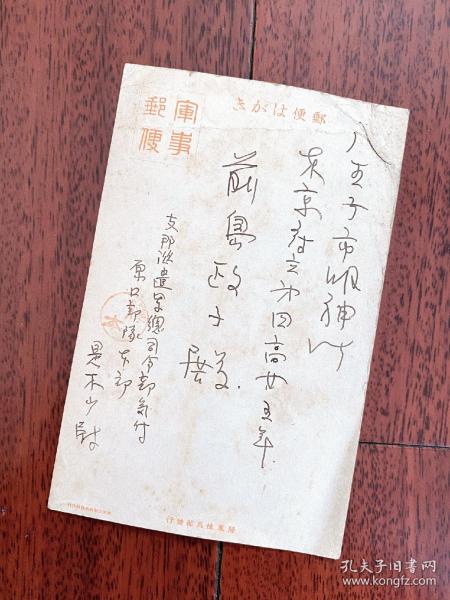 郵便はがき
軍事
郵便
八王子市明神町
東京府立第四高女五年
前島政子殿
支那派遣軍總司令部気付
原口部隊本部
黒木少尉
陸軍恤兵部發行
孔夫子旧书网
www.kongfz.com